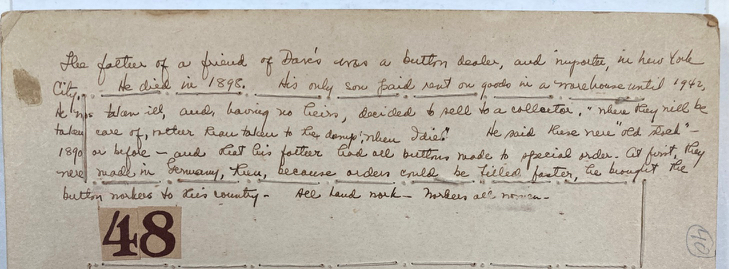 The father of a friend of Dave's was a button dealer, and importer, in New York
City. He died in 1898. His only son paid rent on goods in a warehouse until 1942,
He was taken ill, and, having no heirs, decided to sell to a collector, "where they will be
taken care of, rather than taken to the dump, when I die." He said these were "old stock" -
1890 or before - and that his father had all buttons made to special order. At first, they
were made in Germany, then, because orders could be filled faster, he brought the
button workers to this country - All hand work - Workers all women -
48